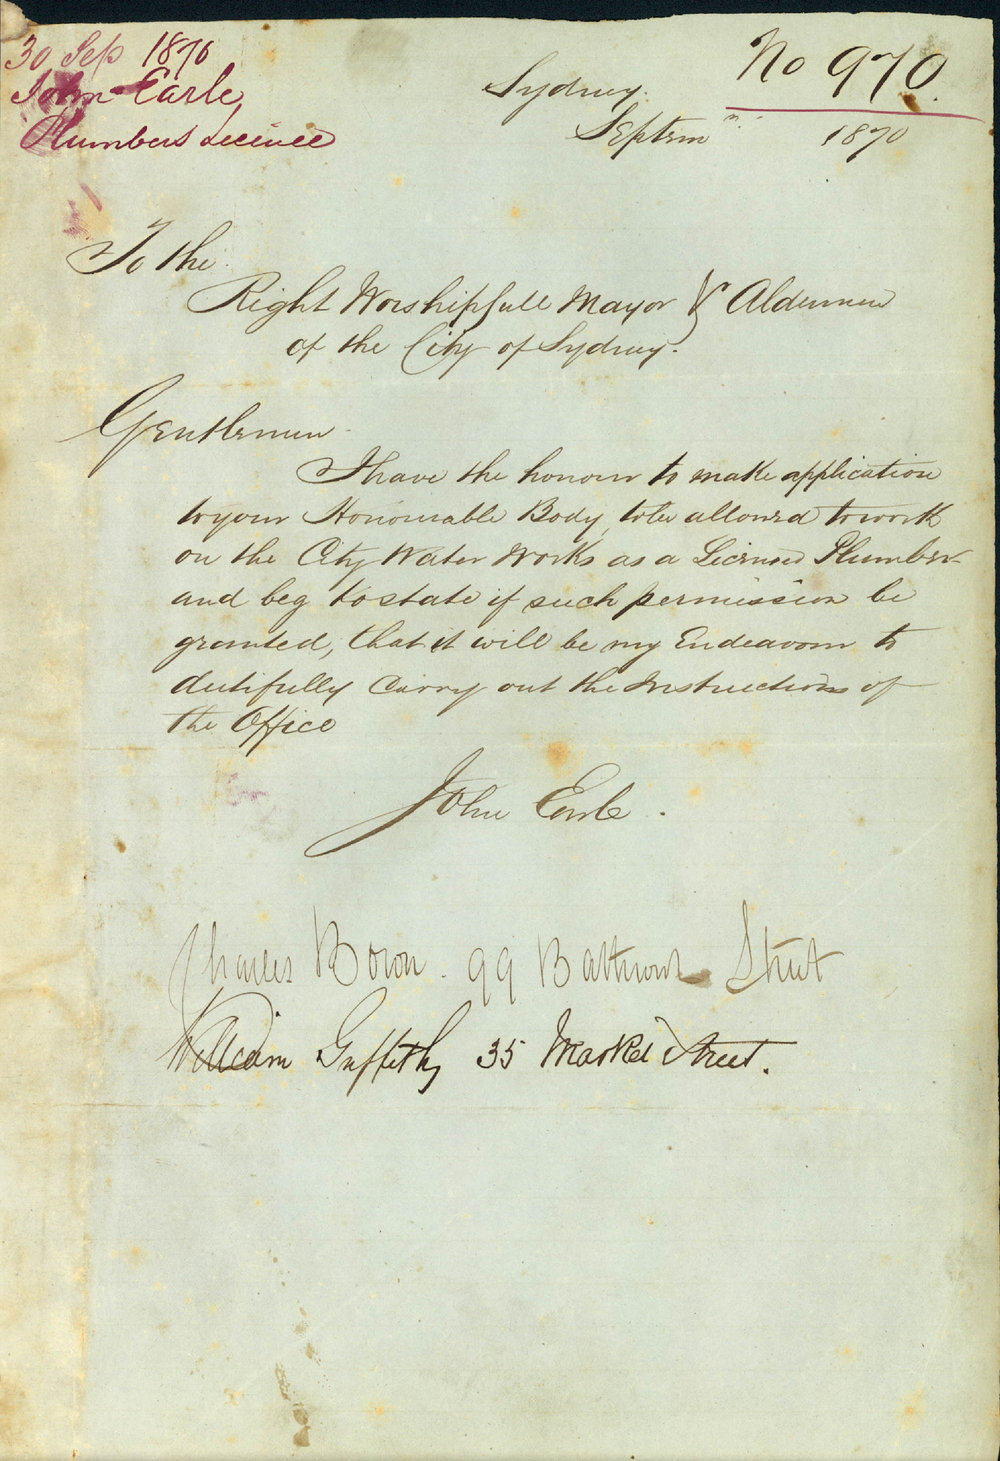 30 Sep 1870
John Earle
Plumbers Licence
No 970
Sydney.
Septem
1870
To the
Right Worshipfull Mayor & Aldermen
of the City of Sydney.
Gentlemen
I have the honour to make application
to your Honourable Body, to be allowed to work
on the City Water Works as a Licensed Plumber
and beg to state if such permission be
granted, that it will be my Endeavour to
dutifully carry out the Instructions of
the Office
John Earle.
Charles Bown. 99 Bathurst Street
William Griffiths 35 Market Street.